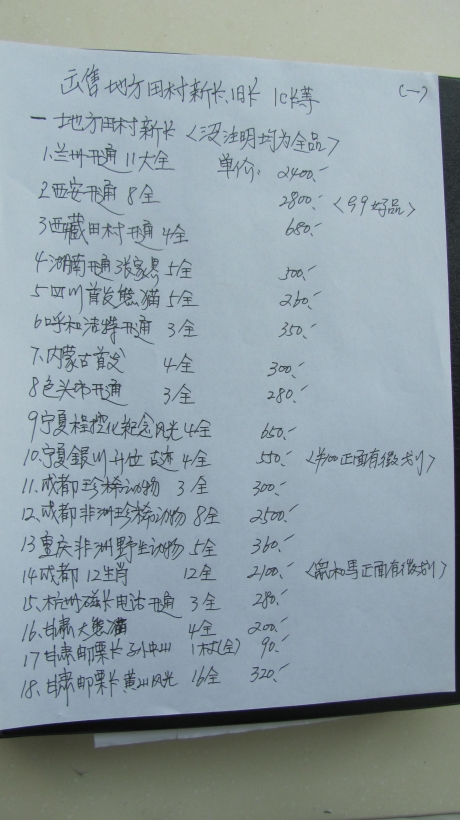 出售地方田村新卡、旧卡 IC卡等 (一)
一 地方田村新卡 <没注明均为全品>
1.兰州开通 11大全 单价: 2400.-
2.西安开通 8全 2800.- <99好品>
3西藏田村开通 4全 680.-
4.湖南开通张家界 5全 500.-
5.四川首发熊猫 5全 260.-
6呼和浩特开通 3全 350.-
7.内蒙古首发 4全 300.-
8包头市开通 3全 280.-
9宁夏程控化纪念风光 4全 650.-
10.宁夏银川升位古杏 4全 550.- <¥100正面有微划>
11.成都珍稀动物 3全 300.-
12.成都非洲珍稀动物 8全 2500.-
13重庆非洲野生动物 5全 360.-
14成都12生肖 12全 2100.- <鼠和馬正面有微划>
15.杭州磁卡电话开通 3全 280.-
16.甘肃大熊猫 4全 200.-
17甘肃邮票卡 1村(全) 90.-
18.甘肃邮票卡 黄州风光 16全 320.-